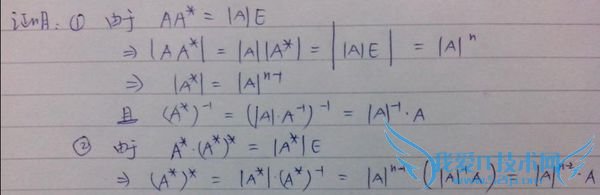 证明：① 由于 AA* = |A|E
⇒ |AA*| = |A||A*| = ||A|E| = |A|ⁿ
⇒ |A*| = |A|ⁿ⁻¹
且 (A*)⁻¹ = (|A|·A⁻¹)⁻¹ = |A|⁻¹·A
② 由于 A*·(A*)* = |A*|E
⇒ (A*)* = |A*|·(A*)⁻¹ = |A|ⁿ⁻¹(|A|⁻¹A) = |A|ⁿ⁻²A